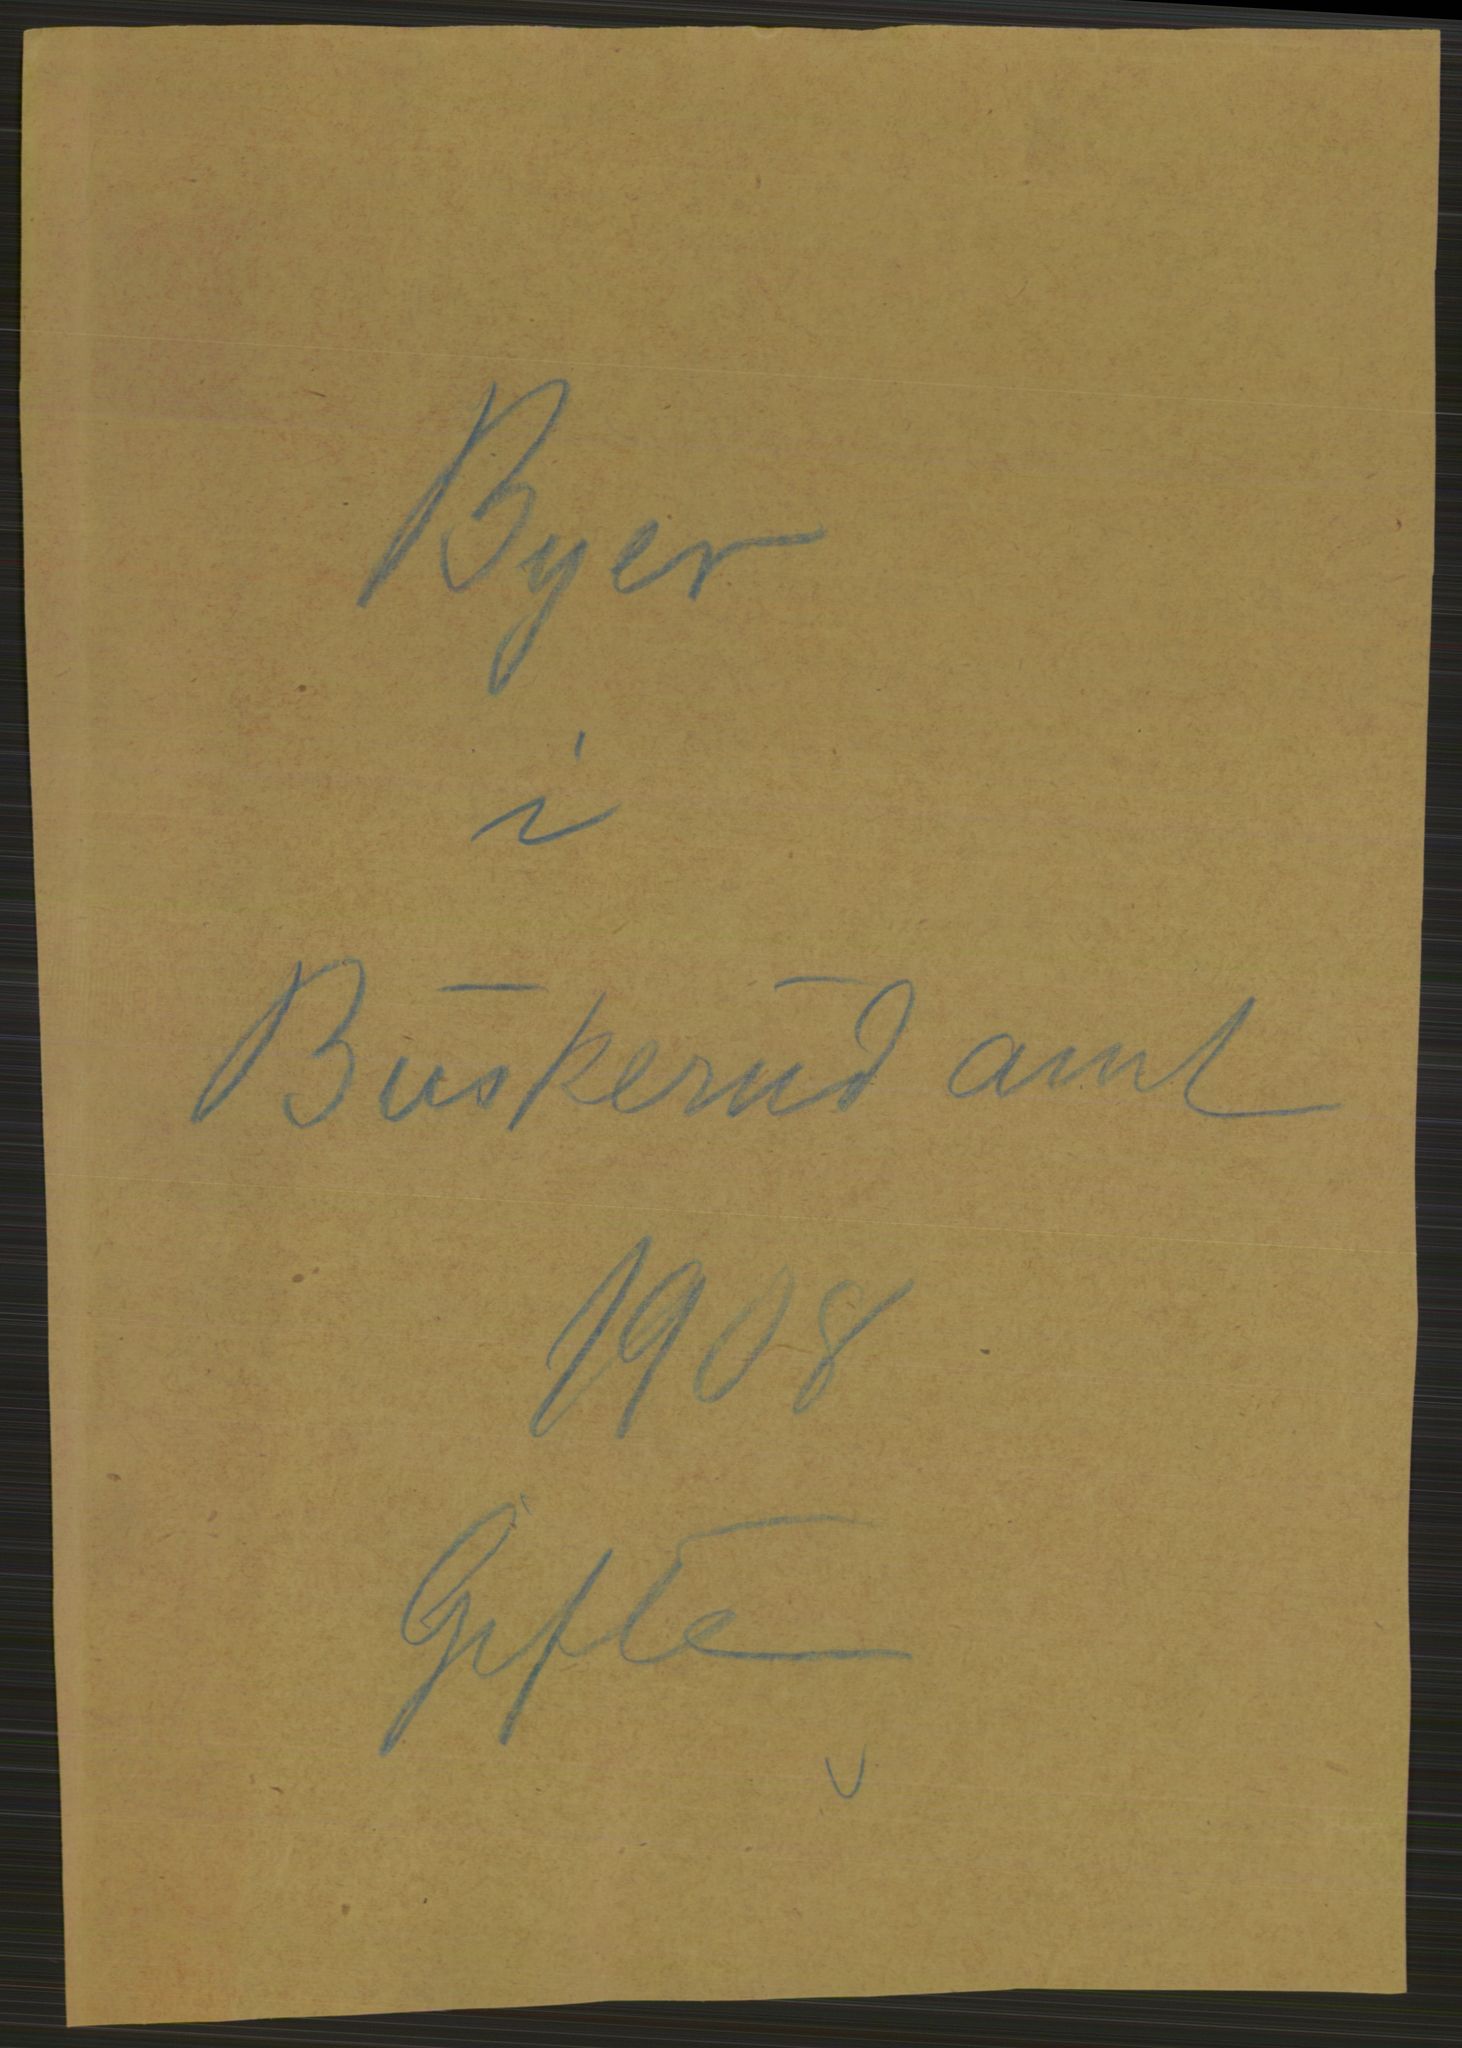 Byer
i
Buskerud amt
1908
Gifte